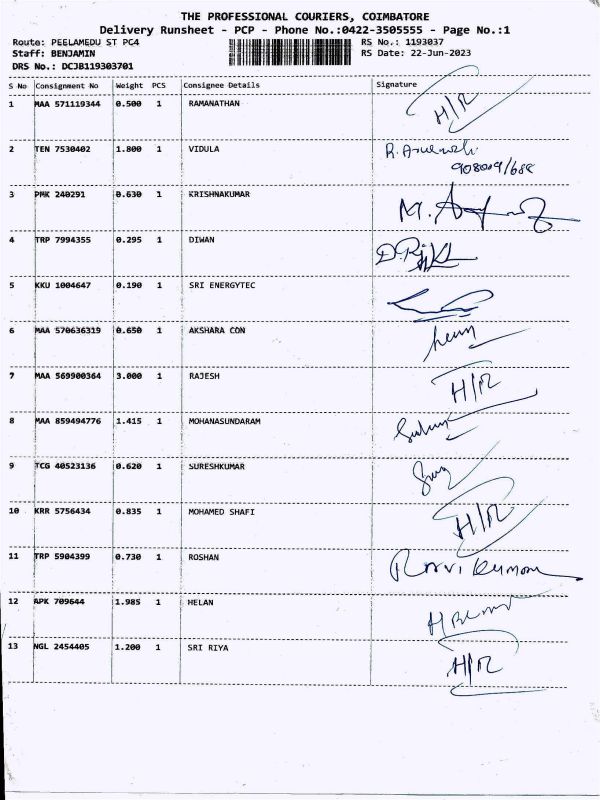 THE PROFESSIONAL COURIERS, COIMBATORE
Delivery Runsheet - PCP - Phone No.:0422-3505555 - Page No.:1
Route: PEELAMEDU ST PC4 RS No.: 1193037
Staff: BENJAMIN RS Date: 22-Jun-2023
DRS No.: DCJB119303701
S No Consignment No Weight PCS Consignee Details Signature
1 MAA 571119344 0.500 1 RAMANATHAN H/R
2 TEN 7530402 1.800 1 VIDULA
3 PMK 240291 0.630 1 KRISHNAKUMAR
4 TRP 7994355 0.295 1 DIWAN
5 KKU 1004647 0.190 1 SRI ENERGYTEC
6 MAA 570636319 0.650 1 AKSHARA CON
7 MAA 569900364 3.000 1 RAJESH H/R
8 MAA 859494776 1.415 1 MOHANASUNDARAM
9 TCG 40523136 0.620 1 SURESHKUMAR
10 KRR 5756434 0.835 1 MOHAMED SHAFI H/R
11 TRP 5904399 0.730 1 ROSHAN Ravi Kumar
12 APK 709644 1.985 1 HELAN
13 NGL 2454405 1.200 1 SRI RIYA H/R